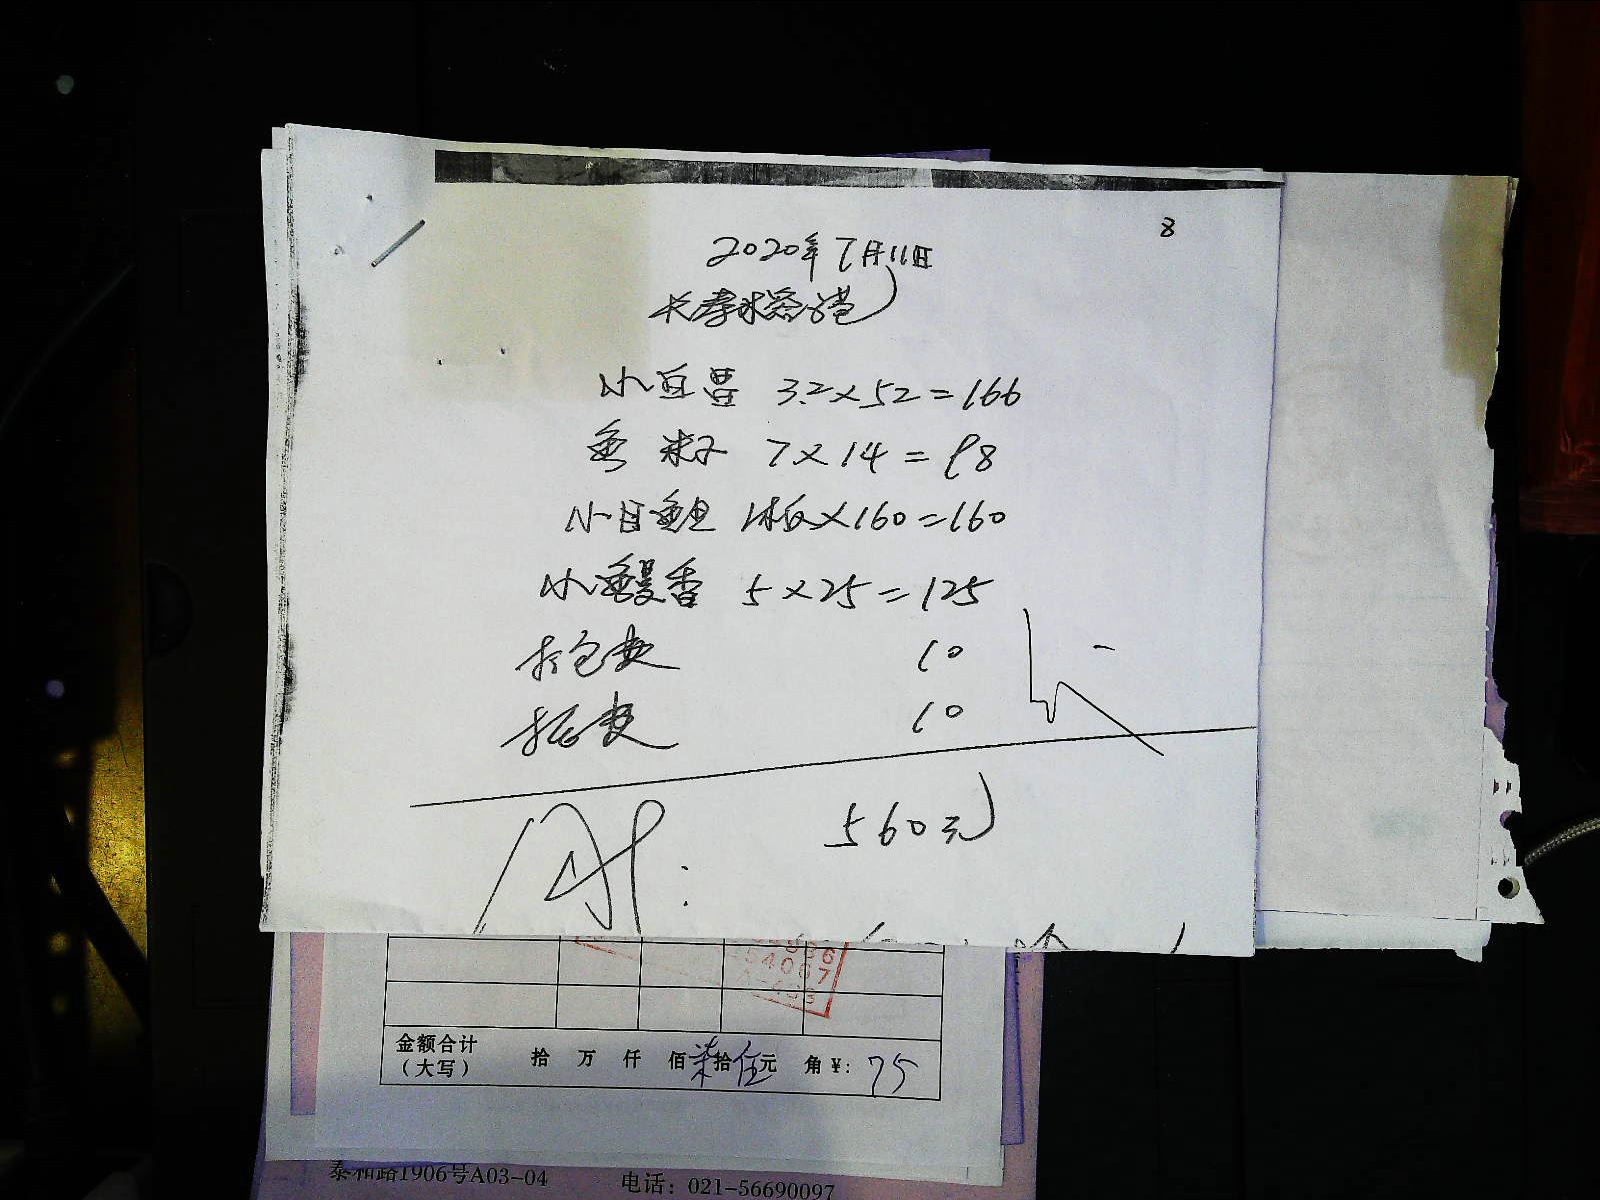 8
2020年7月11日
长寿水
小豆苗 3.2×52=166
鱼 籽 7×14=98
小目鱼 1板×160=160
小鳗香 5×25=125
打包费 10
打包费 10
560元
54067
金额合计
(大写)
拾 万 仟 佰 柒 拾 伍 元 角 ¥: 75
泰和路1906号A03-04 电话: 021-56690097